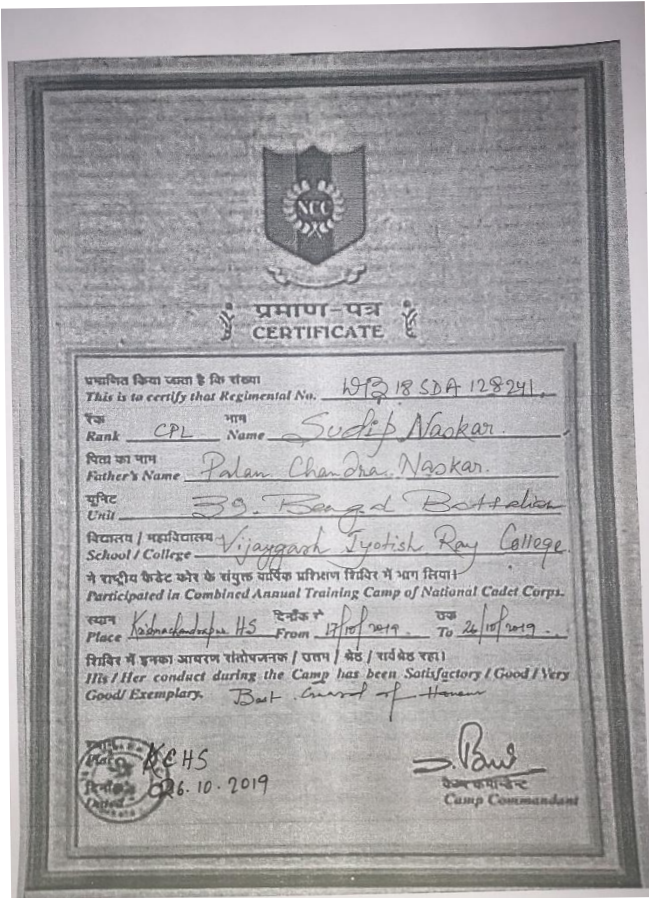 NCC
प्रमाण-पत्र
CERTIFICATE
प्रमाणित किया जाता है कि संख्या
This is to certify that Regimental No. WB 18 SDA 128241.
रैंक नाम
Rank CPL Name Sudip Naskar.
पिता का नाम
Father's Name Palan Chandra Naskar.
यूनिट
Unit 39. Bengal Battalion
विद्यालय / महाविद्यालय
School / College Vijaygarh Jyotish Ray College.
ने राष्ट्रीय कैडेट कोर के संयुक्त वार्षिक प्रशिक्षण शिविर में भाग लिया।
Participated in Combined Annual Training Camp of National Cadet Corps.
स्थान दिनाँक से तक
Place Krishnachandrapur HS From 17/10/2019. To 26/10/2019.
शिविर में इनका आचरण संतोषजनक / उत्तम / श्रेष्ठ / सर्वश्रेष्ठ रहा।
His / Her conduct during the Camp has been Satisfactory / Good / Very
Good / Exemplary. Best Guard of Honour
Place KCHS
दिनाँक 26.10.2019
Dated
कैम्प कमाण्डेन्ट
Camp Commandant